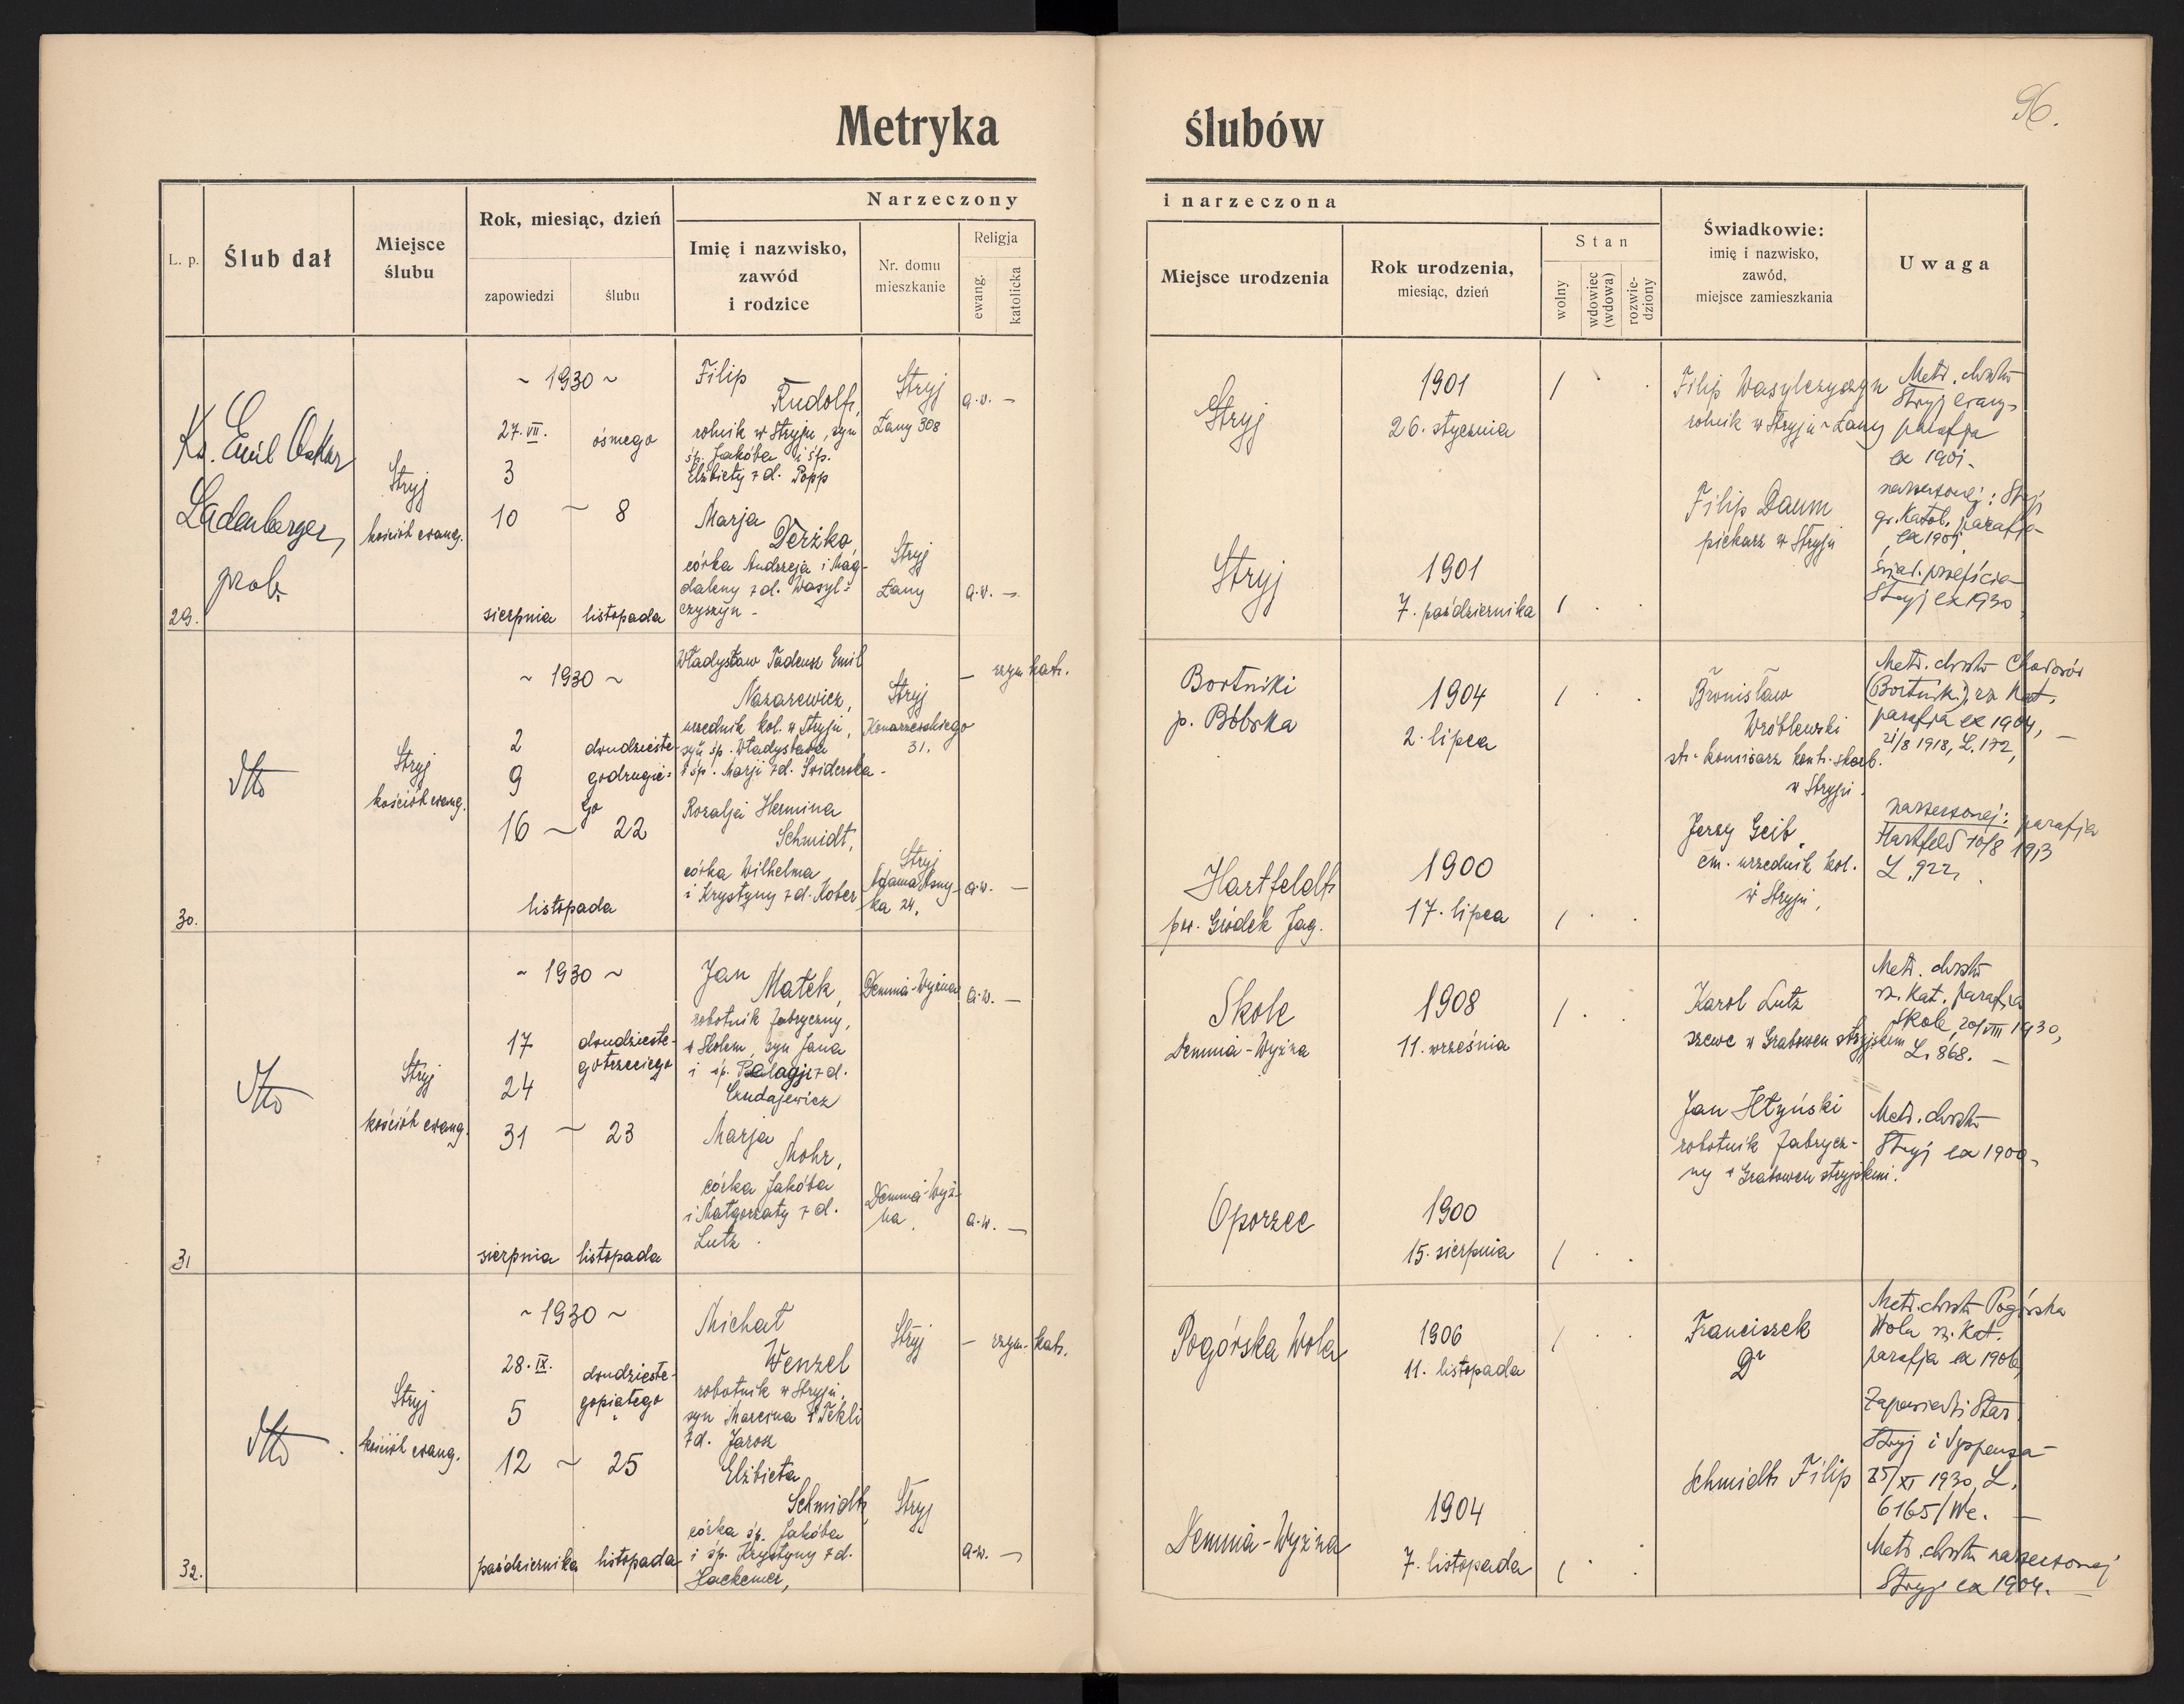 96.
Metryka ślubów
L. p.
Ślub dał
Miejsce
ślubu
Rok, miesiąc, dzień
zapowiedzi
ślubu
Narzeczony
Imię i nazwisko,
zawód
i rodzice
Nr. domu
mieszkanie
Religja
ewang.
katolicka
i narzeczona
Miejsce urodzenia
Rok urodzenia,
miesiąc, dzień
Stan
wolny
wdowiec
(wdowa)
rozwie-
dziony
Świadkowie:
imię i nazwisko,
zawód,
miejsce zamieszkania
Uwaga
29.
Ks. Emil Oskar
Ladenberger,
prob.
Stryj
kościół ewang.
~ 1930 ~
27. VII.
3
10
sierpnia
ósmego
~ 8
listopada
Filip
Rudolf,
rolnik w Stryju, syn
śp. Jakóba i śp.
Elżbiety z d. Popp
Stryj
Łany 308
a.w. —
Marja
Derżko
córka Andrzeja i Mag-
daleny z d. Wasyl-
czyszyn -
Stryj
Łany
a.w. —
Stryj
1901
26. stycznia
/ . .
Stryj
1901
7. października
/ . .
Filip Wasylczyszyn
rolnik w Stryju - Łany
Filip Daum
piekarz w Stryju
Metr. chrztu
Stryj ewang.
parafja
ex 1901.
narzeczonej: Stryj
gr. katol. parafja
ex 1901.
świad. przejścia
Stryj ex 1930
30.
dtto
Stryj
kościół ewang.
~ 1930 ~
2
9
16
dwudzieste-
godrugie-
go
~ 22
listopada
Władysław Tadeusz Emil
Nazarewicz,
urzędnik kol. w Stryju,
syn śp. Władysława
i śp. Marji z d. Swiderska -
Stryj
Konarzewskiego
31.
— rzym kat.
Rozalja Hermina
Schmidt,
córka Wilhelma
i Krystyny z d. Kober
Stryj
Adama Asny-
ka 24.
a.w. —
Bortniki
p. Bóbrka
1904
2. lipca
/ . .
Hartfeldt
pw. Gródek Jag.
1900
17. lipca
/ . .
Bronisław
Wróblewski
st. komisarz kontr. skarb.
w Stryju.
Jerzy Geib,
em. urzędnik kol.
w Stryju,
Metr. chrztu Chodorów
(Bortniki) rz. kat.
parafja ex 1904,
21/8 1918, L. 172,
narzeczonej: parafja
Hartfeld 10/8 1913
L. 922,
31
dtto
Stryj
kościół ewang.
~ 1930 ~
17
24
31
sierpnia
dwudzieste-
gotrzeciego
~ 23
listopada
Jan
Matek,
robotnik fabryczny,
w Skolem, syn Jana
i śp. Pelagji z d.
Czudajewicz
Demnia-Wyżna
a.w. —
Marja
Mohr,
córka Jakóba
i Małgorzaty z d.
Lutz.
Demnia-Wyż-
na.
a.w. —
Skole
Demnia-Wyżna
1908
11. września
/ . .
Oporzec
1900
15. sierpnia
/ . .
Karol Lutz
szewc w Grabowcu stryjskim
Jan Iłtyński
robotnik fabrycz-
ny w Grabowcu stryjskim.
Metr. chrztu
rz. kat. parafja
Skole, 20/VIII 1930,
L. 868. —
Metr. chrztu
Stryj ex 1900
32.
dtto.
Stryj
kościół ewang.
~ 1930 ~
28. IX.
5
12
października
dwudzieste-
gopiątego
~ 25
listopada
Michał
Wenzel
robotnik w Stryju,
syn Marcina i Tekli
z d. Jarosz
Stryj
— rzym. kat.
Elżbieta
Schmidt,
córka śp. Jakóba
i śp. Krystyny z d.
Hackemer,
Stryj
a.w. —
Pogórska Wola
1906
11. listopada
/ . .
Demnia-Wyżna
1904
7. listopada
/ .
Franciszek
Schmidt Filip
Metr. chrztu Pogórska
Wola rz. kat.
parafja ex 1906
Zapowiedzi Star.
Stryj i dyspensa
25/XI 1930, L.
6165/We. —
Metr. chrztu narzeczonej
Stryj ex 1904.